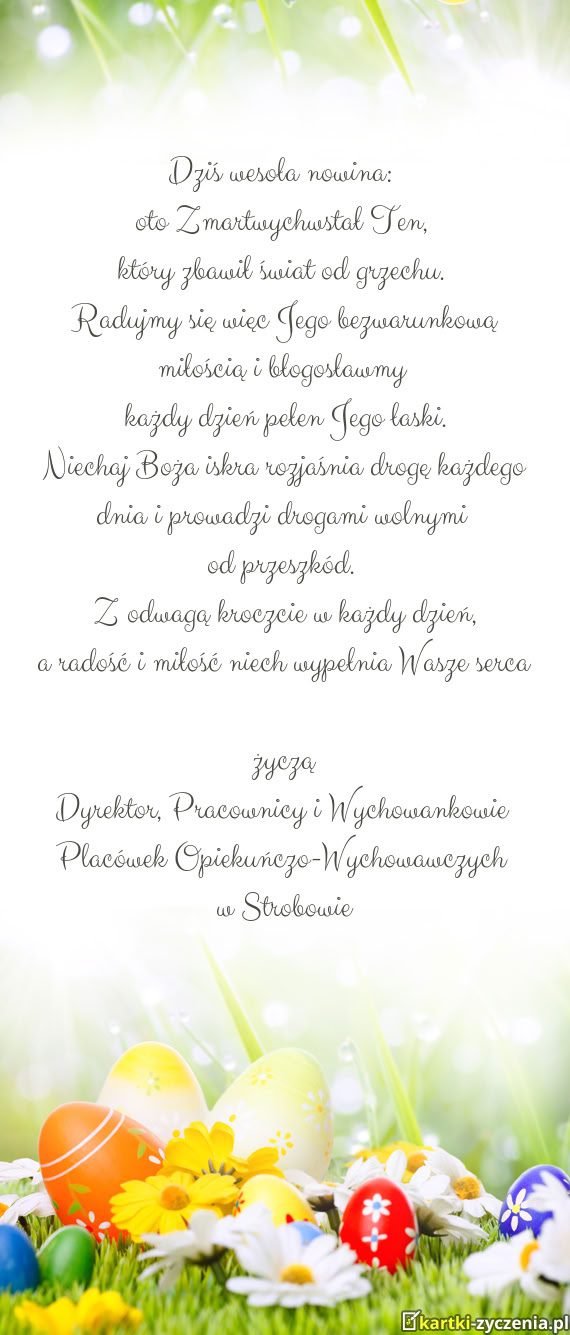 Dziś wesoła nowina:
oto Zmartwychwstał Ten,
który zbawił świat od grzechu.
Radujmy się więc Jego bezwarunkową
miłością i błogosławmy
każdy dzień pełen Jego łaski.
Niechaj Boża iskra rozjaśnia drogę każdego
dnia i prowadzi drogami wolnymi
od przeszkód.
Z odwagą kroczcie w każdy dzień,
a radość i miłość niech wypełnia Wasze serca
życzą
Dyrektor, Pracownicy i Wychowankowie
Placówek Opiekuńczo-Wychowawczych
w Strobowie
kartki-zyczenia.pl